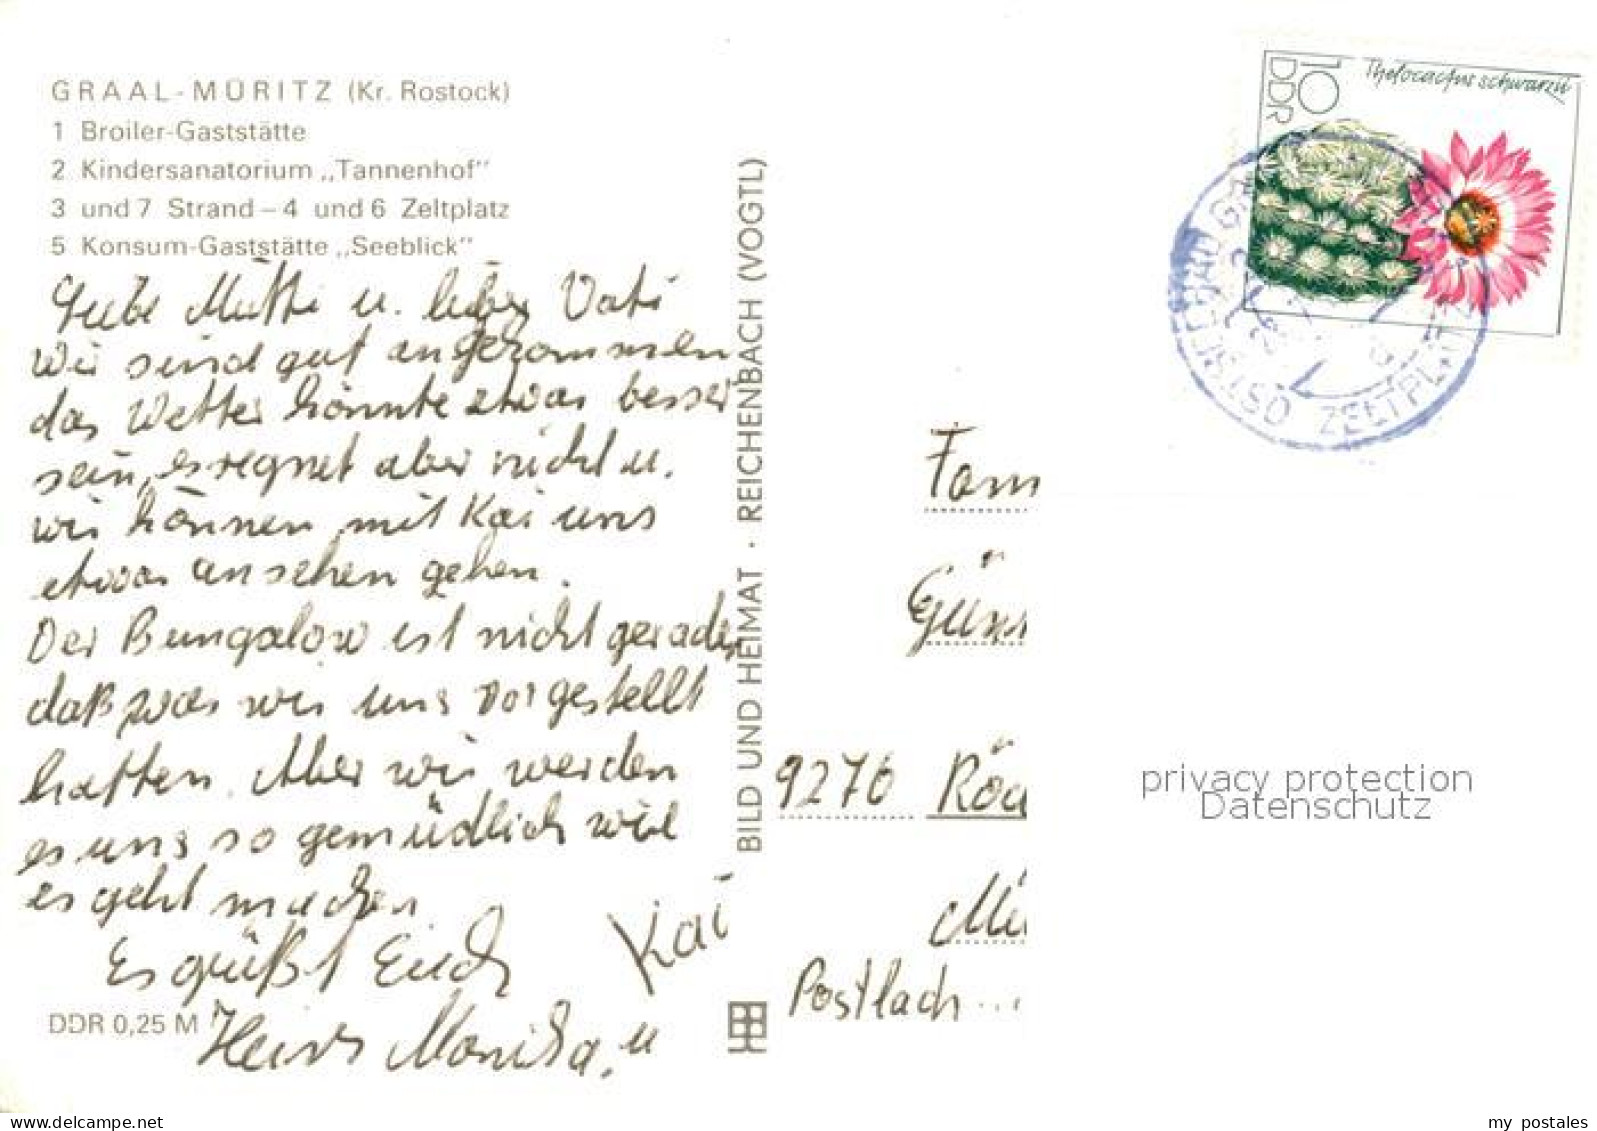 GRAAL-MÜRITZ (Kr. Rostock)
1 Broiler-Gaststätte
2 Kindersanatorium „Tannenhof“
3 und 7 Strand – 4 und 6 Zeltplatz
5 Konsum-Gaststätte „Seeblick“
Liebe Mutti u. lieber Vati
Wir sind gut angekommen
das Wetter könnte etwas besser
sein, es regnet aber nicht u.
wir können mit Kai uns
etwas ansehen gehen.
Der Bungalow ist nicht gerade
daß was wir uns vorgestellt
hatten. Aber wir werden
es uns so gemüdlich wie
es geht machen
Es grüßt Euch
Heinz Monika, u
Kai
DDR 0,25 M
BILD UND HEIMAT · REICHENBACH (VOGTL)
10
DDR
Thelocactus schwarzii
OSTSEEBAD
ZELTPL
Fam
9276
Postfach...
privacy protection
Datenschutz
my postales
Delcampe.net